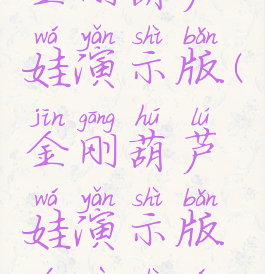 wá yǎn shì bǎn
娃演示版(
jīn gāng hú lú
金刚葫芦
wá yǎn shì bǎn
娃演示版